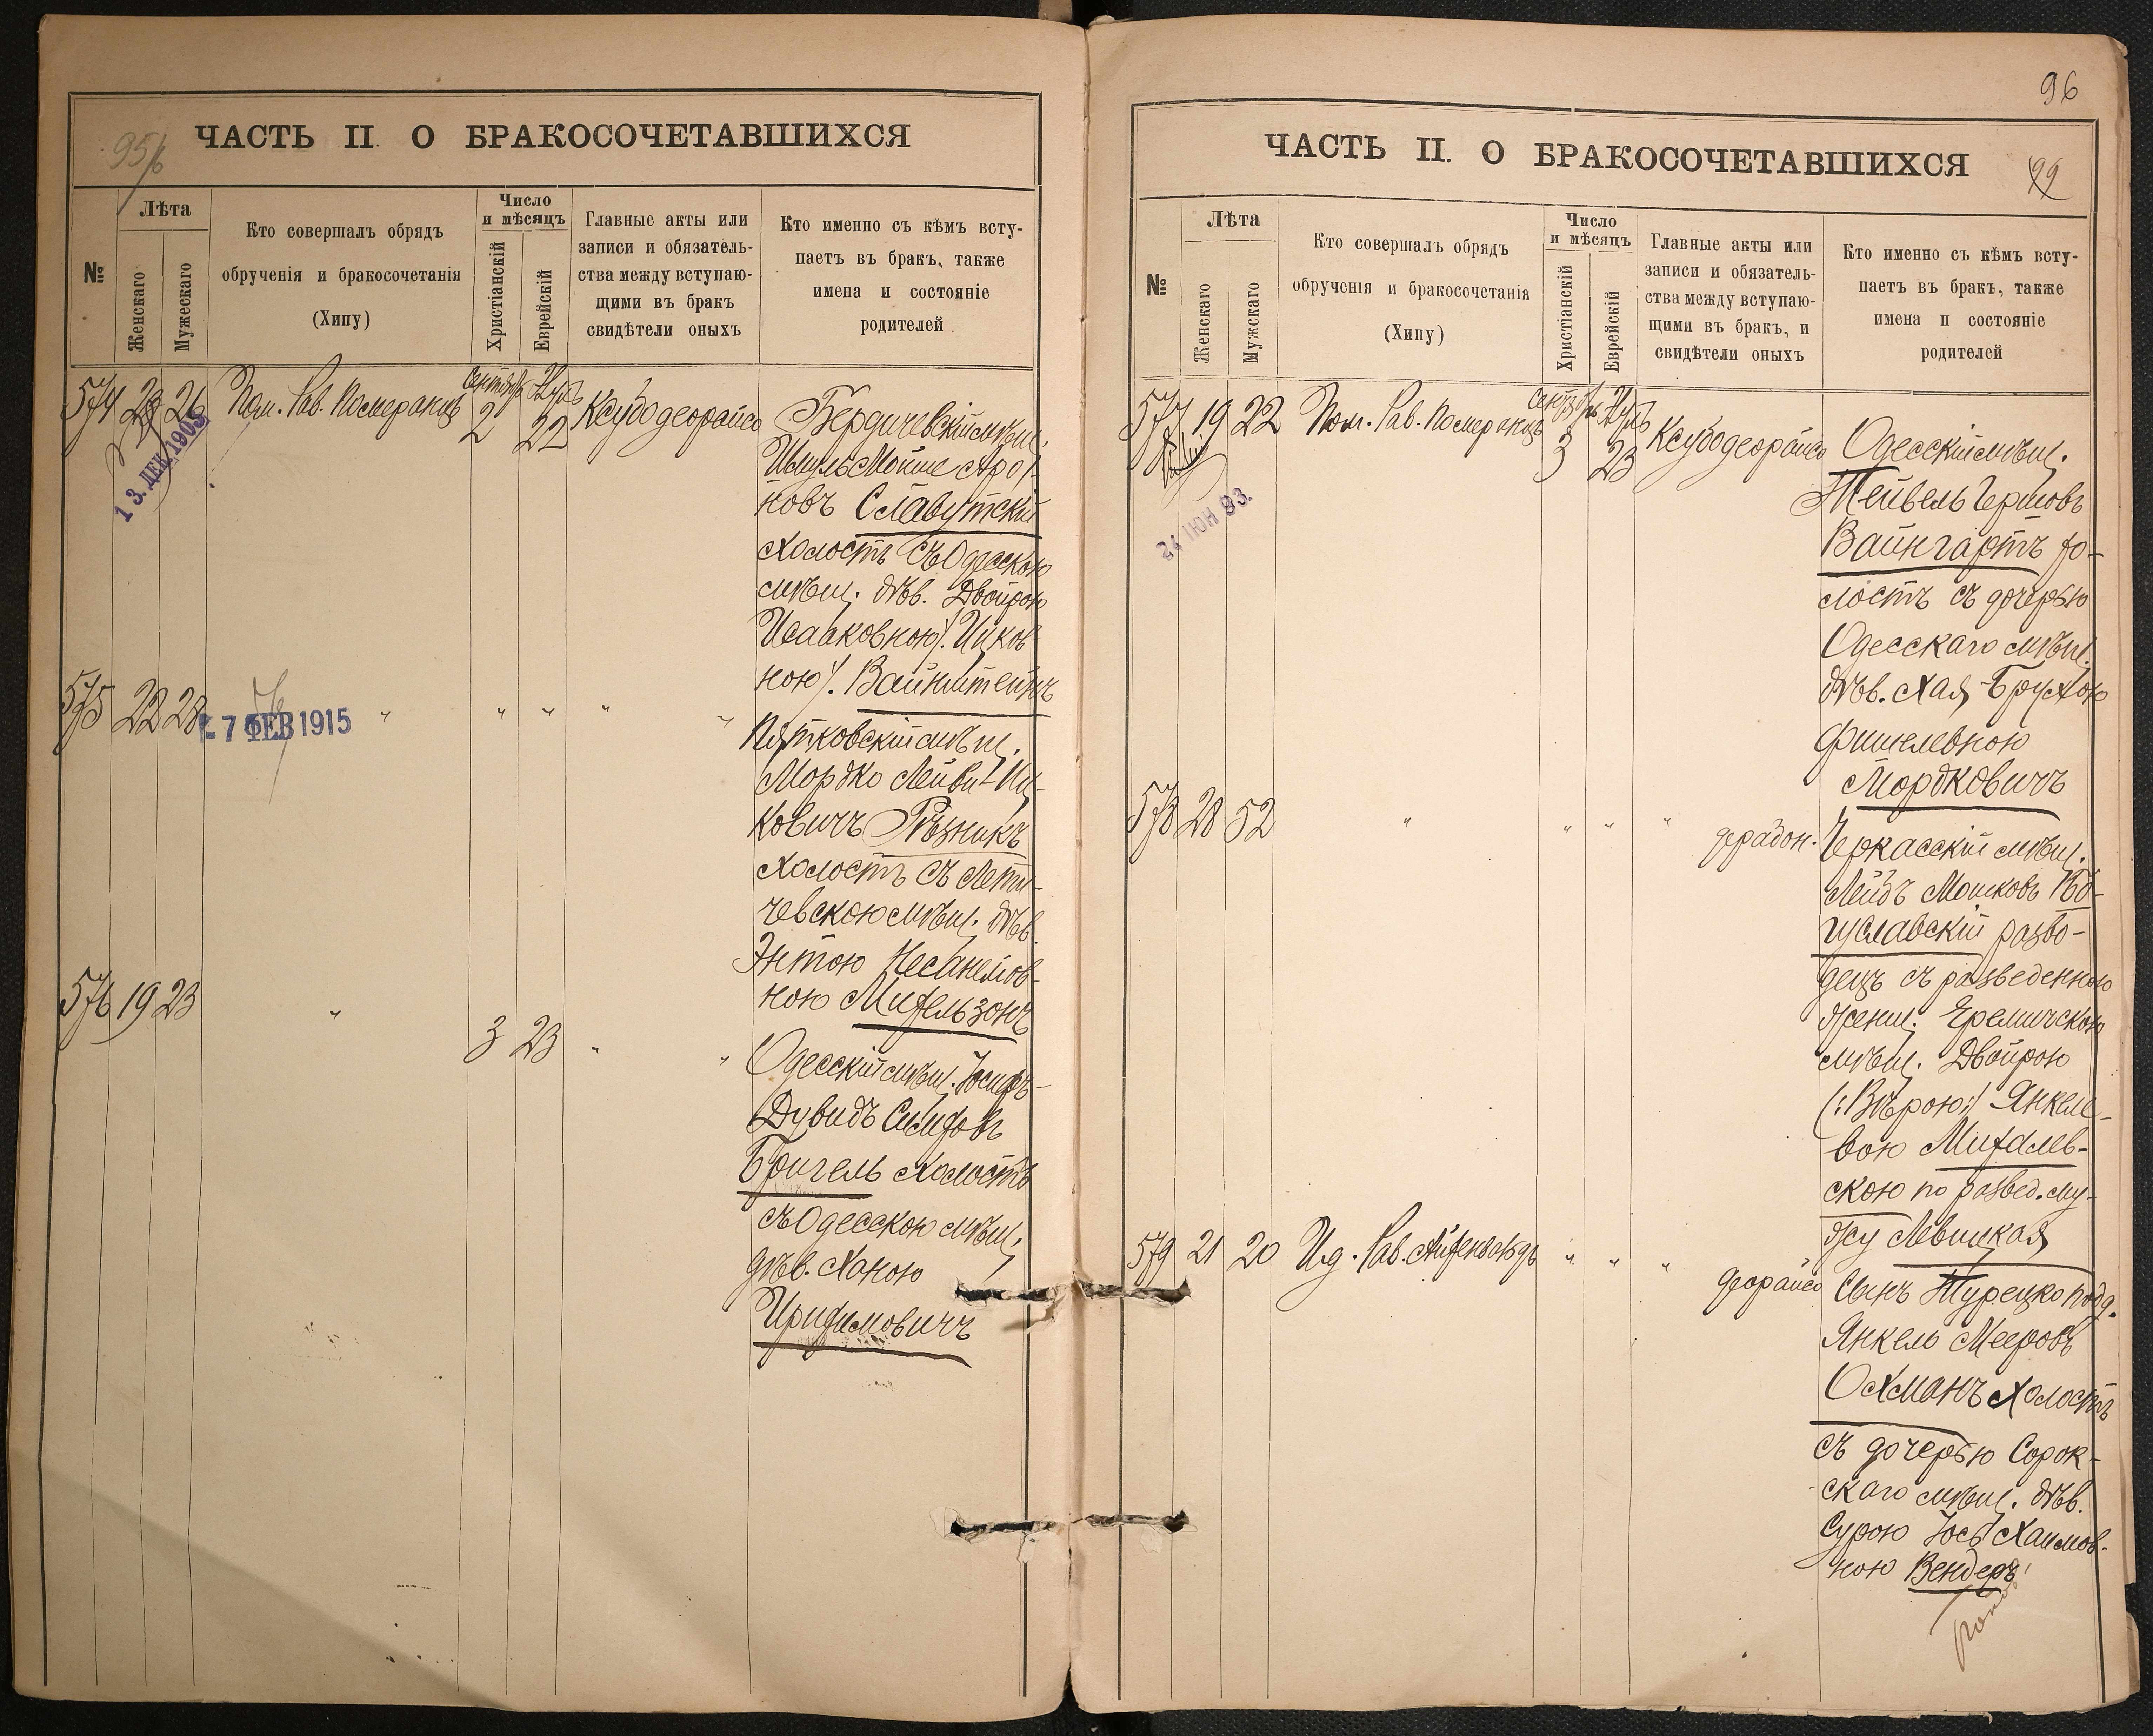 95/6
ЧАСТЬ II. О БРАКОСОЧЕТАВШИХСЯ
№
Лѣта
Женскаго
Мужескаго
Кто совершалъ обрядъ
обрученія и бракосочетанія
(Хипу)
Число
и мѣсяцъ
Христіанскій
Еврейскій
Главные акты или
записи и обязатель-
ства между вступаю-
щими въ бракъ
свидѣтели оныхъ
Кто именно съ кѣмъ всту-
паетъ въ бракъ, также
имена и состояніе
родителей
574 26 Пом. Рав. Померанцъ Сентябр 2 22 Ксубо деорайса
13. ДЕК. 1905
Бердичевскій мѣщ.
Шмуль Мойше Аро/
новъ Славутскій
холостъ съ Одесскою
мѣщ. дѣв. Двойрою
Исааковною/. Ицков
ною/. Вайнштейнъ
575 22 28 " " " " "
- 7 ФЕВ 1915
Пятковскій мѣщ.
Мордко Лейви-Иц-
ковичъ Рѣзникъ
холостъ съ Лети-
чевскою мѣщ. дѣв.
Энтою Несанелов-
ною Михельзонъ
576 19 23 " 3 23 " "
Одесскій мѣщ. Іосифъ-
Дувидъ
Бригель холостъ
съ Одесскою мѣщ.
дѣв. Ханою
96
ЧАСТЬ II. О БРАКОСОЧЕТАВШИХСЯ
99
№
Лѣта
Женскаго
Мужскаго
Кто совершалъ обрядъ
обрученія и бракосочетанія
(Хипу)
Число
и мѣсяцъ
Христіанскій
Еврейскій
Главные акты или
записи и обязатель-
ства между вступаю-
щими въ бракъ, и
свидѣтели оныхъ
Кто именно съ кѣмъ всту-
паетъ въ бракъ, также
имена и состояніе
родителей
577 19 22 Пом. Рав. Померанцъ 3 23 Ксубо деорайса
24 ІЮН 93.
Одесскій мѣщ.
Тейвель Гершовъ
Вайнгартъ хо-
лостъ съ дочерью
Одесскаго мѣщ.
дѣв. Хая-Брухою
Фишелевною
Мордковичъ
578 28 52 " " " "
Черкасскій мѣщ.
Лейбъ Мошковъ Бо-
гуславскій разво-
децъ съ разведенною
женщ.
мѣщ. Двойрою
(:Вѣрою:) Янкеле-
вою Михалев-
скою по развед. му-
жу Левицкая
579 21 20 И.д. Рав. Айхенвальдъ " " " деорайса
Сынъ Турецко подд.
Янкель Мееровъ
Охманъ холостъ
съ дочерью Сорок-
скаго мѣщ. дѣв.
Сурою Хаимов-
ною Вендеръ